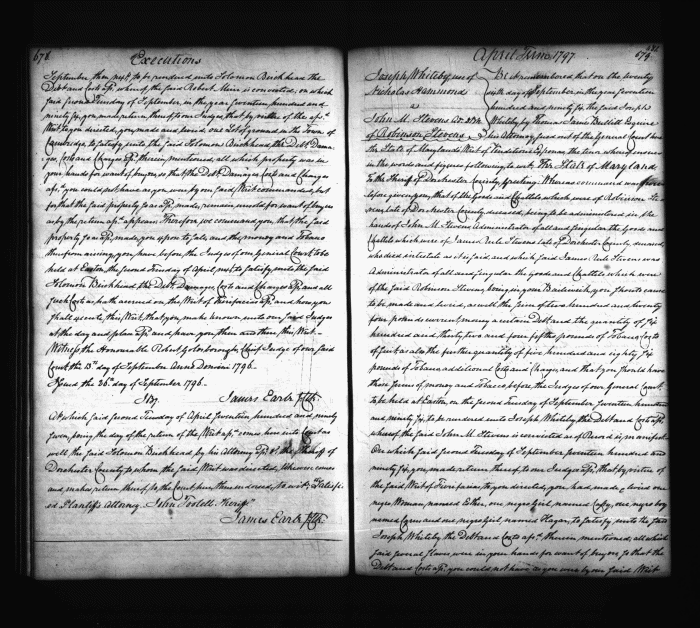 678
Executions
September then next, to be rendered unto Solomon Birckhead the
Debt and Costs aforesd. whereof the said Robert Muir is convicted, on which
said second Tuesday of September, in the year seventeen hundred and
ninety six, you made return thereof to our Judges, that by virtue of the afsd.
Writ to you directed, you made and seized one Lot of ground in the Town of
Cambridge, to satisfy unto the said Solomon Birckhead the Debt Dama-
ges, Costs and Charges afsd. therein mentioned, all which property was in
your hands for want of buyers, so that the Debt, Damages, Costs and Charges
afsd. you could not have as you were by our said Writ commanded, but
for that the said property so as afsd. made, remains unsold for want of buyers
as by the return afsd. appears. Therefore we command you, that the said
property so as afsd. made, you expose to Sale, and the money and Tobacco
thereon arising, you have before the Judges of our General Court, to be
held at Easton, the second Tuesday of April next, to satisfy unto the said
Solomon Birckhead, the Debt, Damages, Costs and Charges afsd. and all
such Costs as hath accrued on this Writ of Venditioni Exponas and how you
shall execute this Writ, that you make known unto our said Judges
at the day and place afsd. and have you then and there, this Writ.
Witness the Honourable Robert Goldsborough, Chief Judge of our said
Court the 13th day of September Anno Domini 1796.
Issued the 26th day of September 1796.
James Earle Jr. Clk.
At which said second Tuesday of April seventeen hundred and ninety
seven, being the day of the return of the Writ afsd. comes here into Court as
well the said Solomon Birckhead by his Attorney afsd. as the Sheriff of
Dorchester County to whom the said Writ was directed, likewise comes
and makes return thereof to the Court here thus endorsed, to wit; "Satisfi-
ed Plaintiffs Attorney. John Sheriff"
James Earle Jr. Clk.
April Term 1797
679
Joseph Whiteley use of
Nicholas Hammond
v
John M. Stevens Adr.
of Robinson Stevens
Be it remembered that on the twenty
day of September in the year seventeen
hundred and ninety six the said Joseph
Whiteley by Thomas James Bullitt Esquire
his Attorney sued out of the General Court here
the State of Maryland's Writ of Venditioni Exponas the tenor whereof ensues
in the words and figures following to wit. The State of Maryland
to the Sheriff of Dorchester County, Greeting: Whereas command was
before given you, that of the Goods and Chattels which were of Robinson Ste-
vens late of Dorchester County deceased, being to be administered in the
hands of John M. Stevens Administrator of all and singular the Goods and
Chattels which were of James Stevens late of Dorchester County, deceased,
who died intestate as it is said and which said James Stevens was
Administrator of all and singular the goods and Chattels which were
of the said Robinson Stevens, being in your Bailiwick, you should cause
to be made and levied, as well the sum of two hundred and twenty
four pounds current money a certain Debt and the quantity of six
hundred and thirty two and four fifths pounds of Tobacco, Costs
of suit as also the further quantity of five hundred and eighty six
pounds of Tobacco additional Costs and Charges, and that you should have
those sums of money and Tobacco, before the Judges of our General Court
to be held at Easton on the second Tuesday of September seventeen hundred
and ninety six, to be rendered unto Joseph Whiteley the Debt and Costs afsd.
whereof the said John M. Stevens is convicted as of Record is manifest.
On which said second Tuesday of September seventeen hundred and
ninety six, you made return thereof to our Judges afsd. that by virtue of
the said Writ of Fieri facias, to you directed, you had made & seized one
negro Woman, named Esther, one negro Girl, named, one negro boy
named and one negro Girl, named Hagar, to satisfy unto the said
Joseph Whiteley the Debt and Costs afsd. therein mentioned, all which
said several slaves were in your hands for want of buyers, so that the
Debt and Costs afsd. you could not have as you were by our said Writ